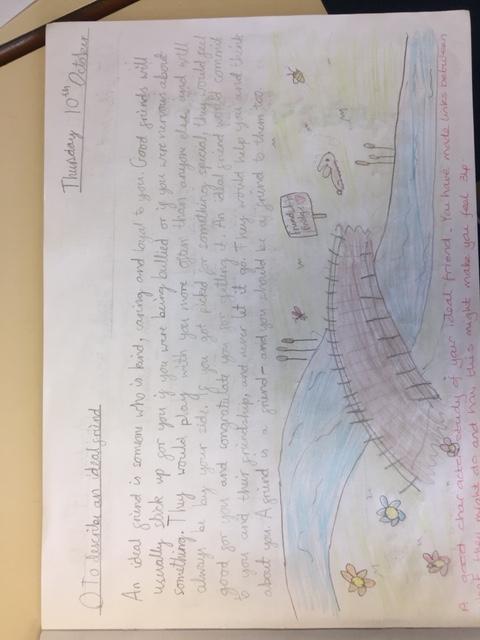 Thursday 10th October
To describe an ideal friend
An ideal friend is someone who is kind, caring and loyal to you. Good friends will
usually stick up for you if you were being bullied or if you were nervous about
something. They would play with you more often than anyone else and will
always be by your side. If you got picked for something special, they would feel
good for you and congratulate you for getting it. An ideal friend would commit
to you and their friendship, and never let it go. They would help you and think
about you. A friend is a friend - and you should be a friend to them too.
Friendship
Bridge
A good character study of your ideal friend. You have made links between
what they might do and how this might make you feel